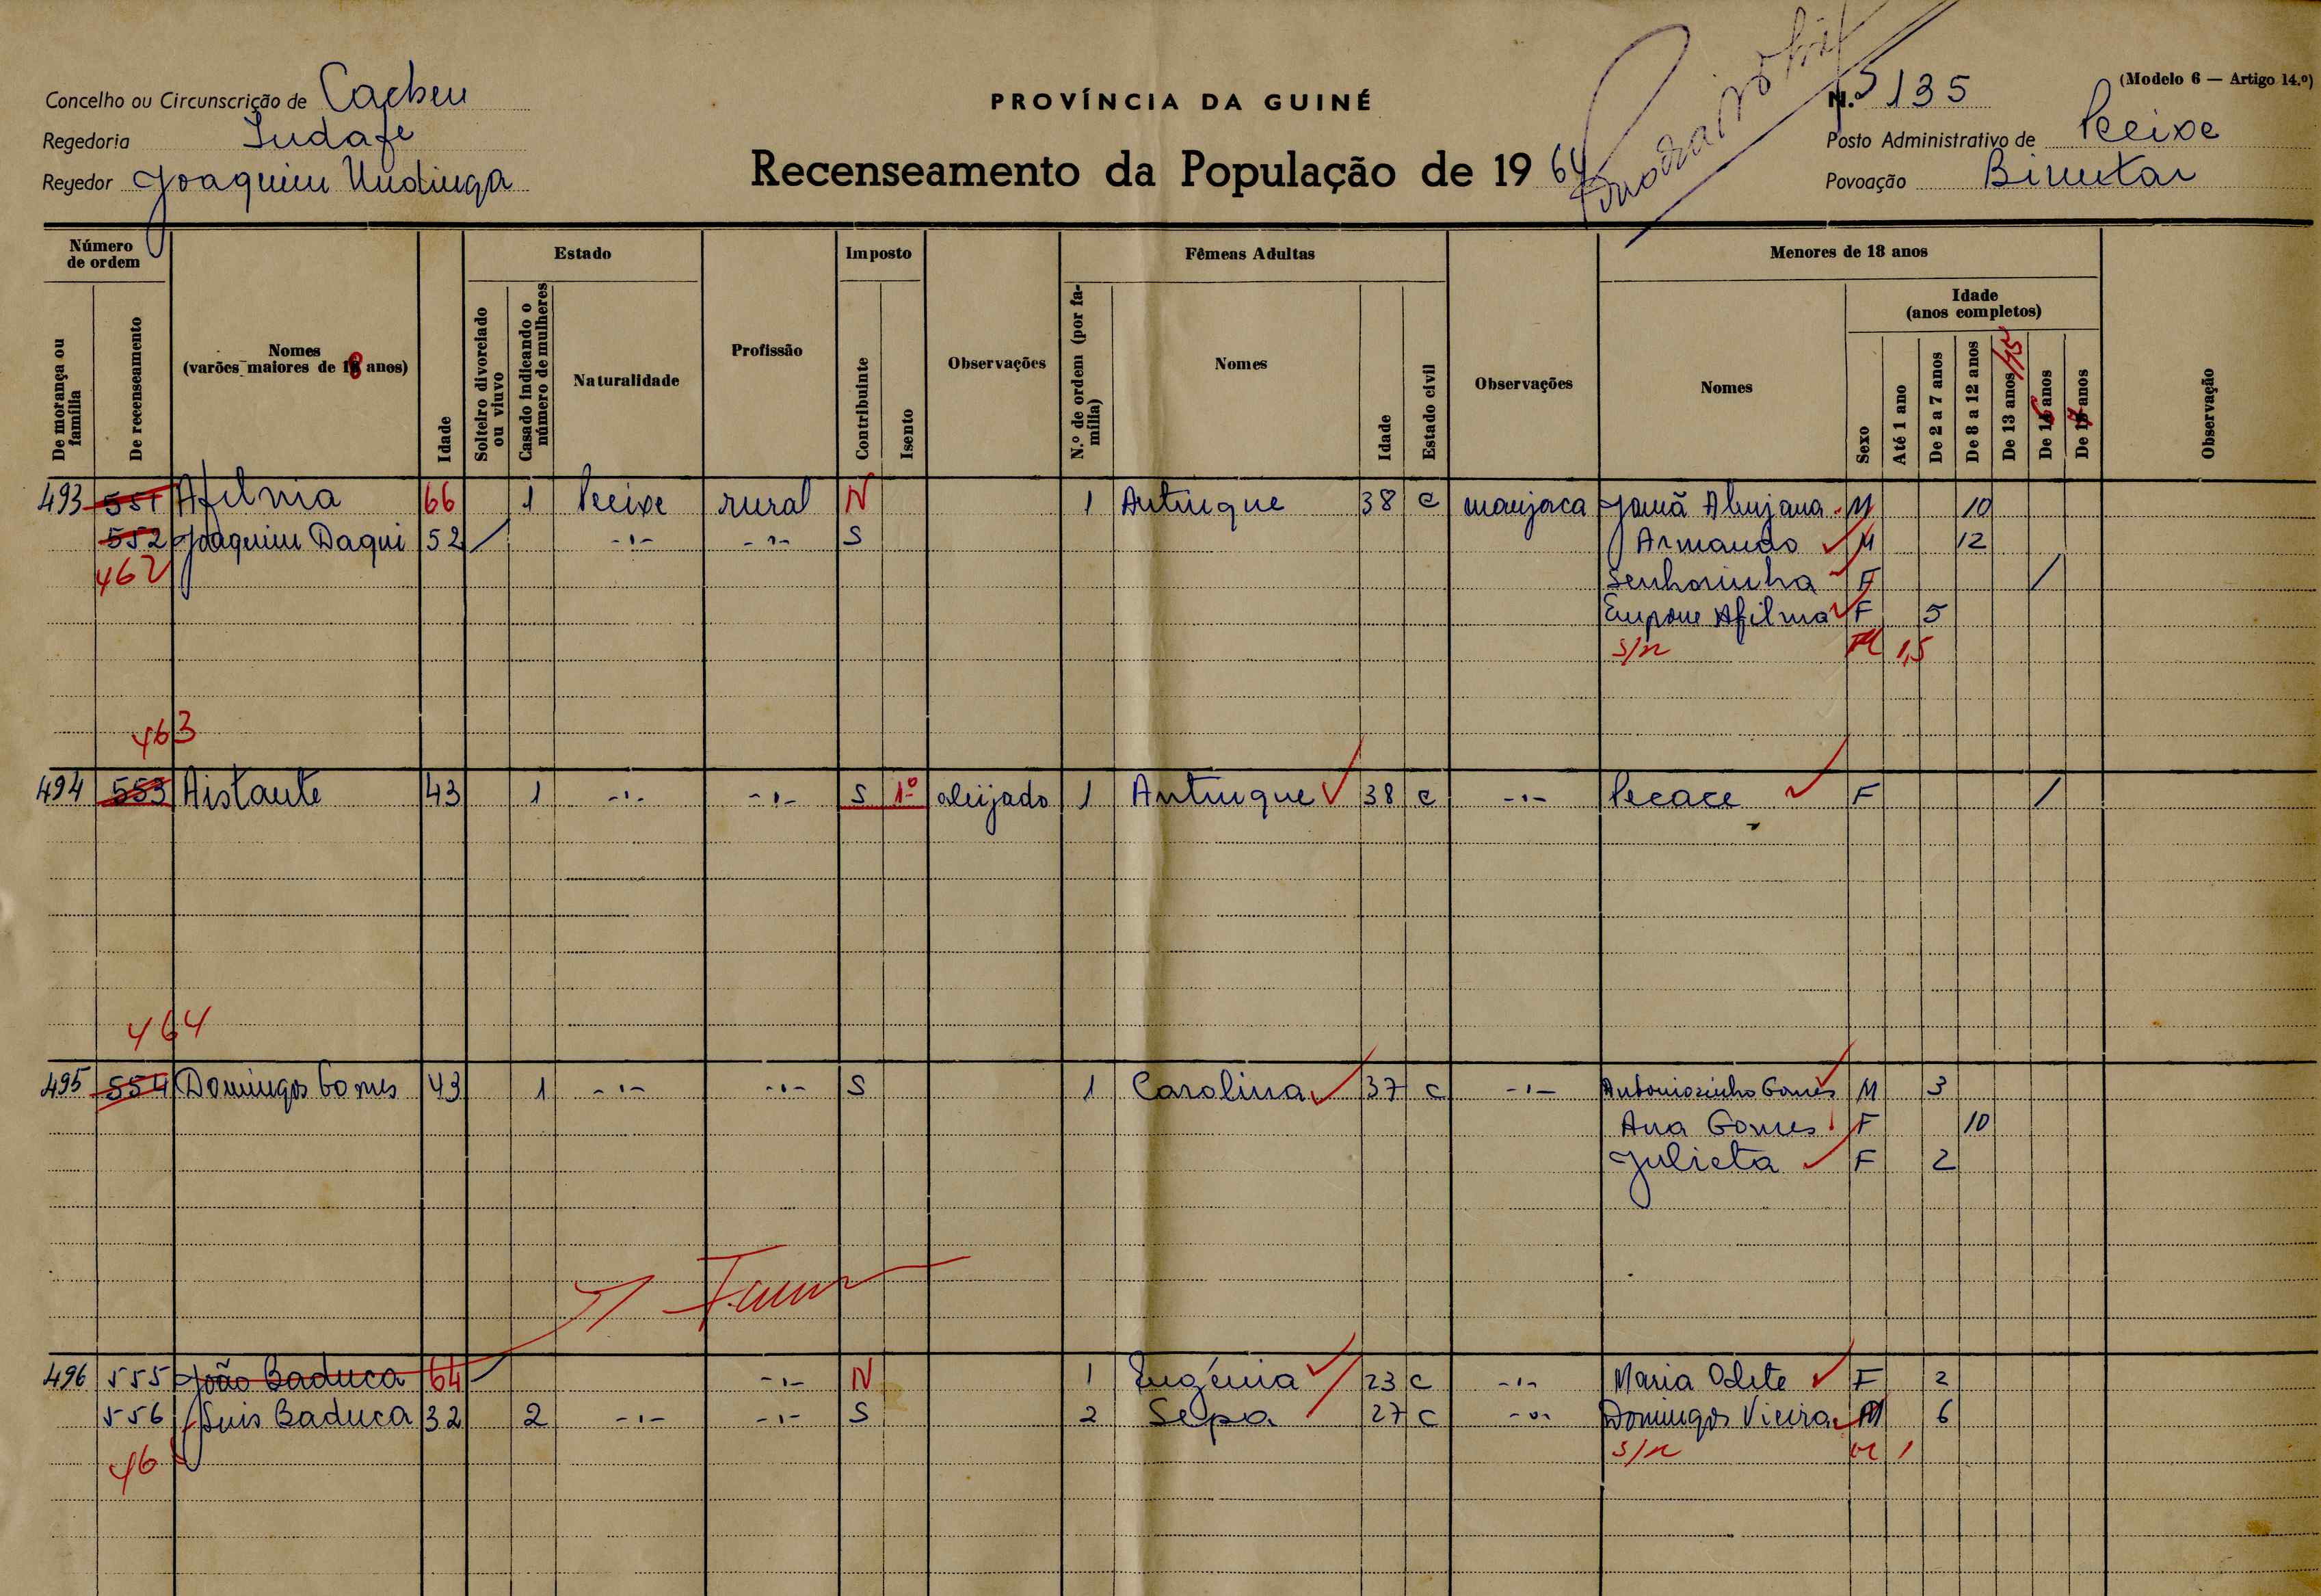 Concelho ou Circunscrição de Cacheu
PROVÍNCIA DA GUINÉ
N.º 135
(Modelo 6 — Artigo 14.º)
Regedoria
Posto Administrativo de Pecixe
Regedor Joaquim Undinga
Recenseamento da População de 1964
Povoação Bimutar
Número de ordem
De morança ou família
De recenseamento
Nomes (varões maiores de 18 anos)
Idade
Estado
Solteiro divorciado ou viuvo
Casado indicando o número de mulheres
Naturalidade
Profissão
Imposto
Contribuinte
Isento
Observações
Fêmeas Adultas
N.º de ordem (por família)
Nomes
Idade
Estado civil
Observações
Menores de 18 anos
Nomes
Sexo
Idade (anos completos)
Até 1 ano
De 2 a 7 anos
De 8 a 12 anos
De 13 anos /15
De 16 anos
De 17 anos
Observação
493 551 Afilma 66 1 Pecixe rural N 1 Antuque 38 c manjaca M 10
552 Joaquim Daqui 52 / -"- -"- S Armando M 12
462 Senhorinha F /
Afilma F 5
s/n M 1,5
463
494 553 Aistante 43 1 -"- -"- S 1º aleijado 1 Antuque 38 c -"- Pecace F /
464
495 554 Domingos Gomes 43 1 -"- -"- S 1 Carolina 37 c -"- Antoniozinho Gomes M 3
Ana Gomes F 10
Julieta F 2
496 555 João Baduca 64 / -"- N 1 Eugénia 23 c -"- Maria Odete F 2
556 Luis Baduca 32 2 -"- -"- S 2 Sepa 27 c -"- Domingos Vieira M 6
46 s/n M 1